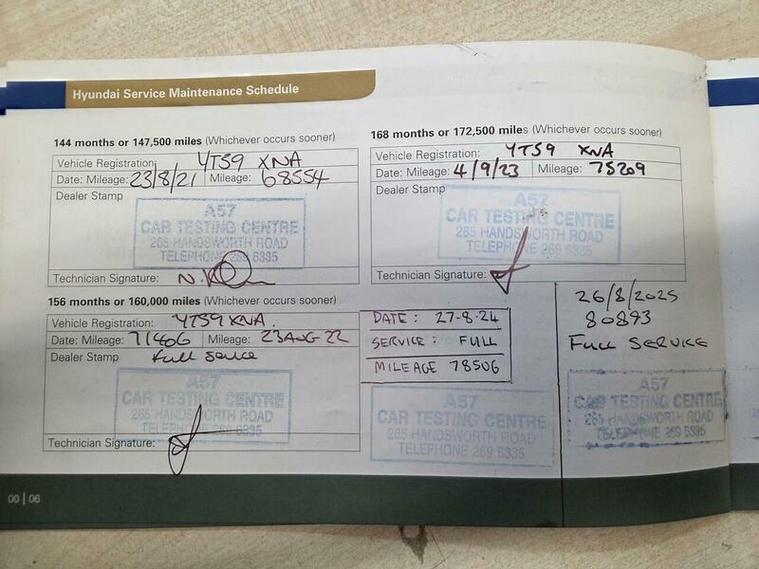 Hyundai Service Maintenance Schedule
144 months or 147,500 miles (Whichever occurs sooner)
Vehicle Registration: YT59 XNA
Date: Mileage: 23/8/21 Mileage: 68554
Dealer Stamp
A57
CAR TESTING CENTRE
265 HANDSWORTH ROAD
TELEPHONE 269 6335
Technician Signature:
156 months or 160,000 miles (Whichever occurs sooner)
Vehicle Registration: YT59 XNA.
Date: Mileage: 71406 Mileage: 23 AUG 22
Dealer Stamp Full Service
A57
CAR TESTING CENTRE
265 HANDSWORTH ROAD
TELEPHONE 269 6335
Technician Signature:
168 months or 172,500 miles (Whichever occurs sooner)
Vehicle Registration: YT59 XNA
Date: Mileage: 4/9/23 Mileage: 75209
Dealer Stamp
A57
CAR TESTING CENTRE
265 HANDSWORTH ROAD
TELEPHONE 269 6335
Technician Signature:
DATE: 27-8-24
SERVICE: FULL
MILEAGE 78506
A57
CAR TESTING CENTRE
265 HANDSWORTH ROAD
TELEPHONE 269 6335
26/8/2025
80893
FULL SERVICE
A57
CAR TESTING CENTRE
265 HANDSWORTH ROAD
TELEPHONE 269 6335
00 | 06